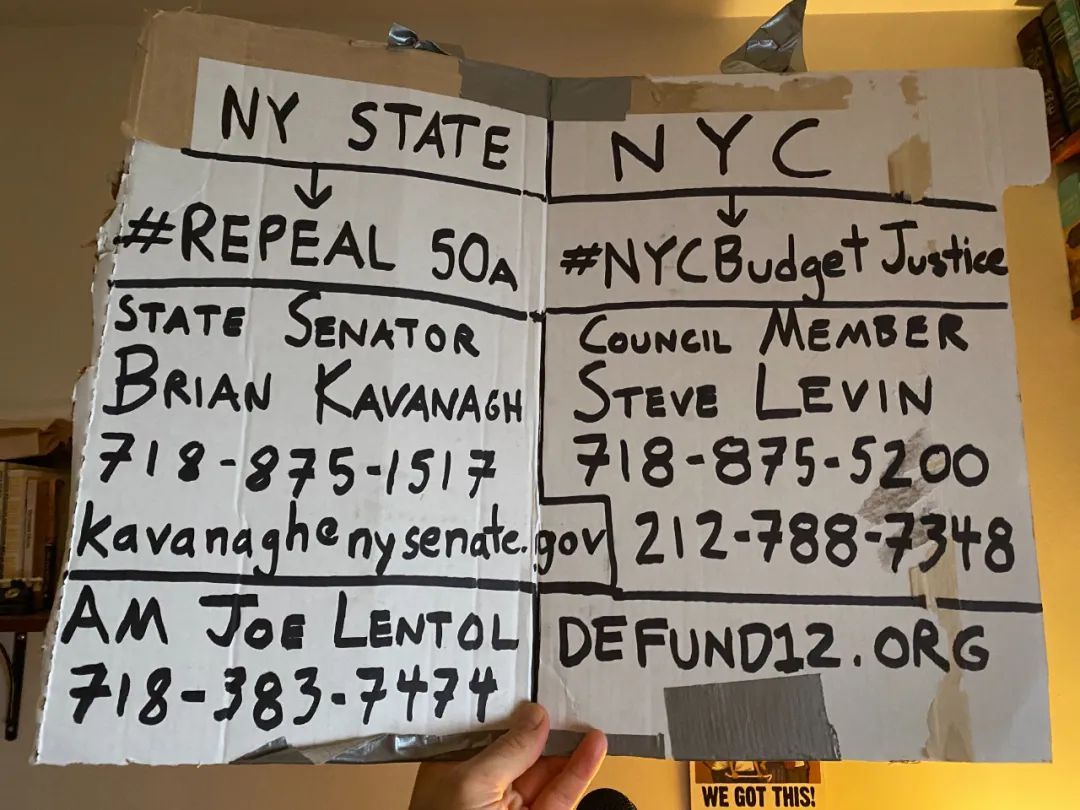 NY STATE
#REPEAL 50A
STATE SENATOR
BRIAN KAVANAGH
718-875-1517
kavanagh@nysenate.gov
AM JOE LENTOL
718-383-7474
NYC
#NYCBudget Justice
COUNCIL MEMBER
STEVE LEVIN
718-875-5200
212-788-7348
DEFUND12.ORG
WE GOT THIS!